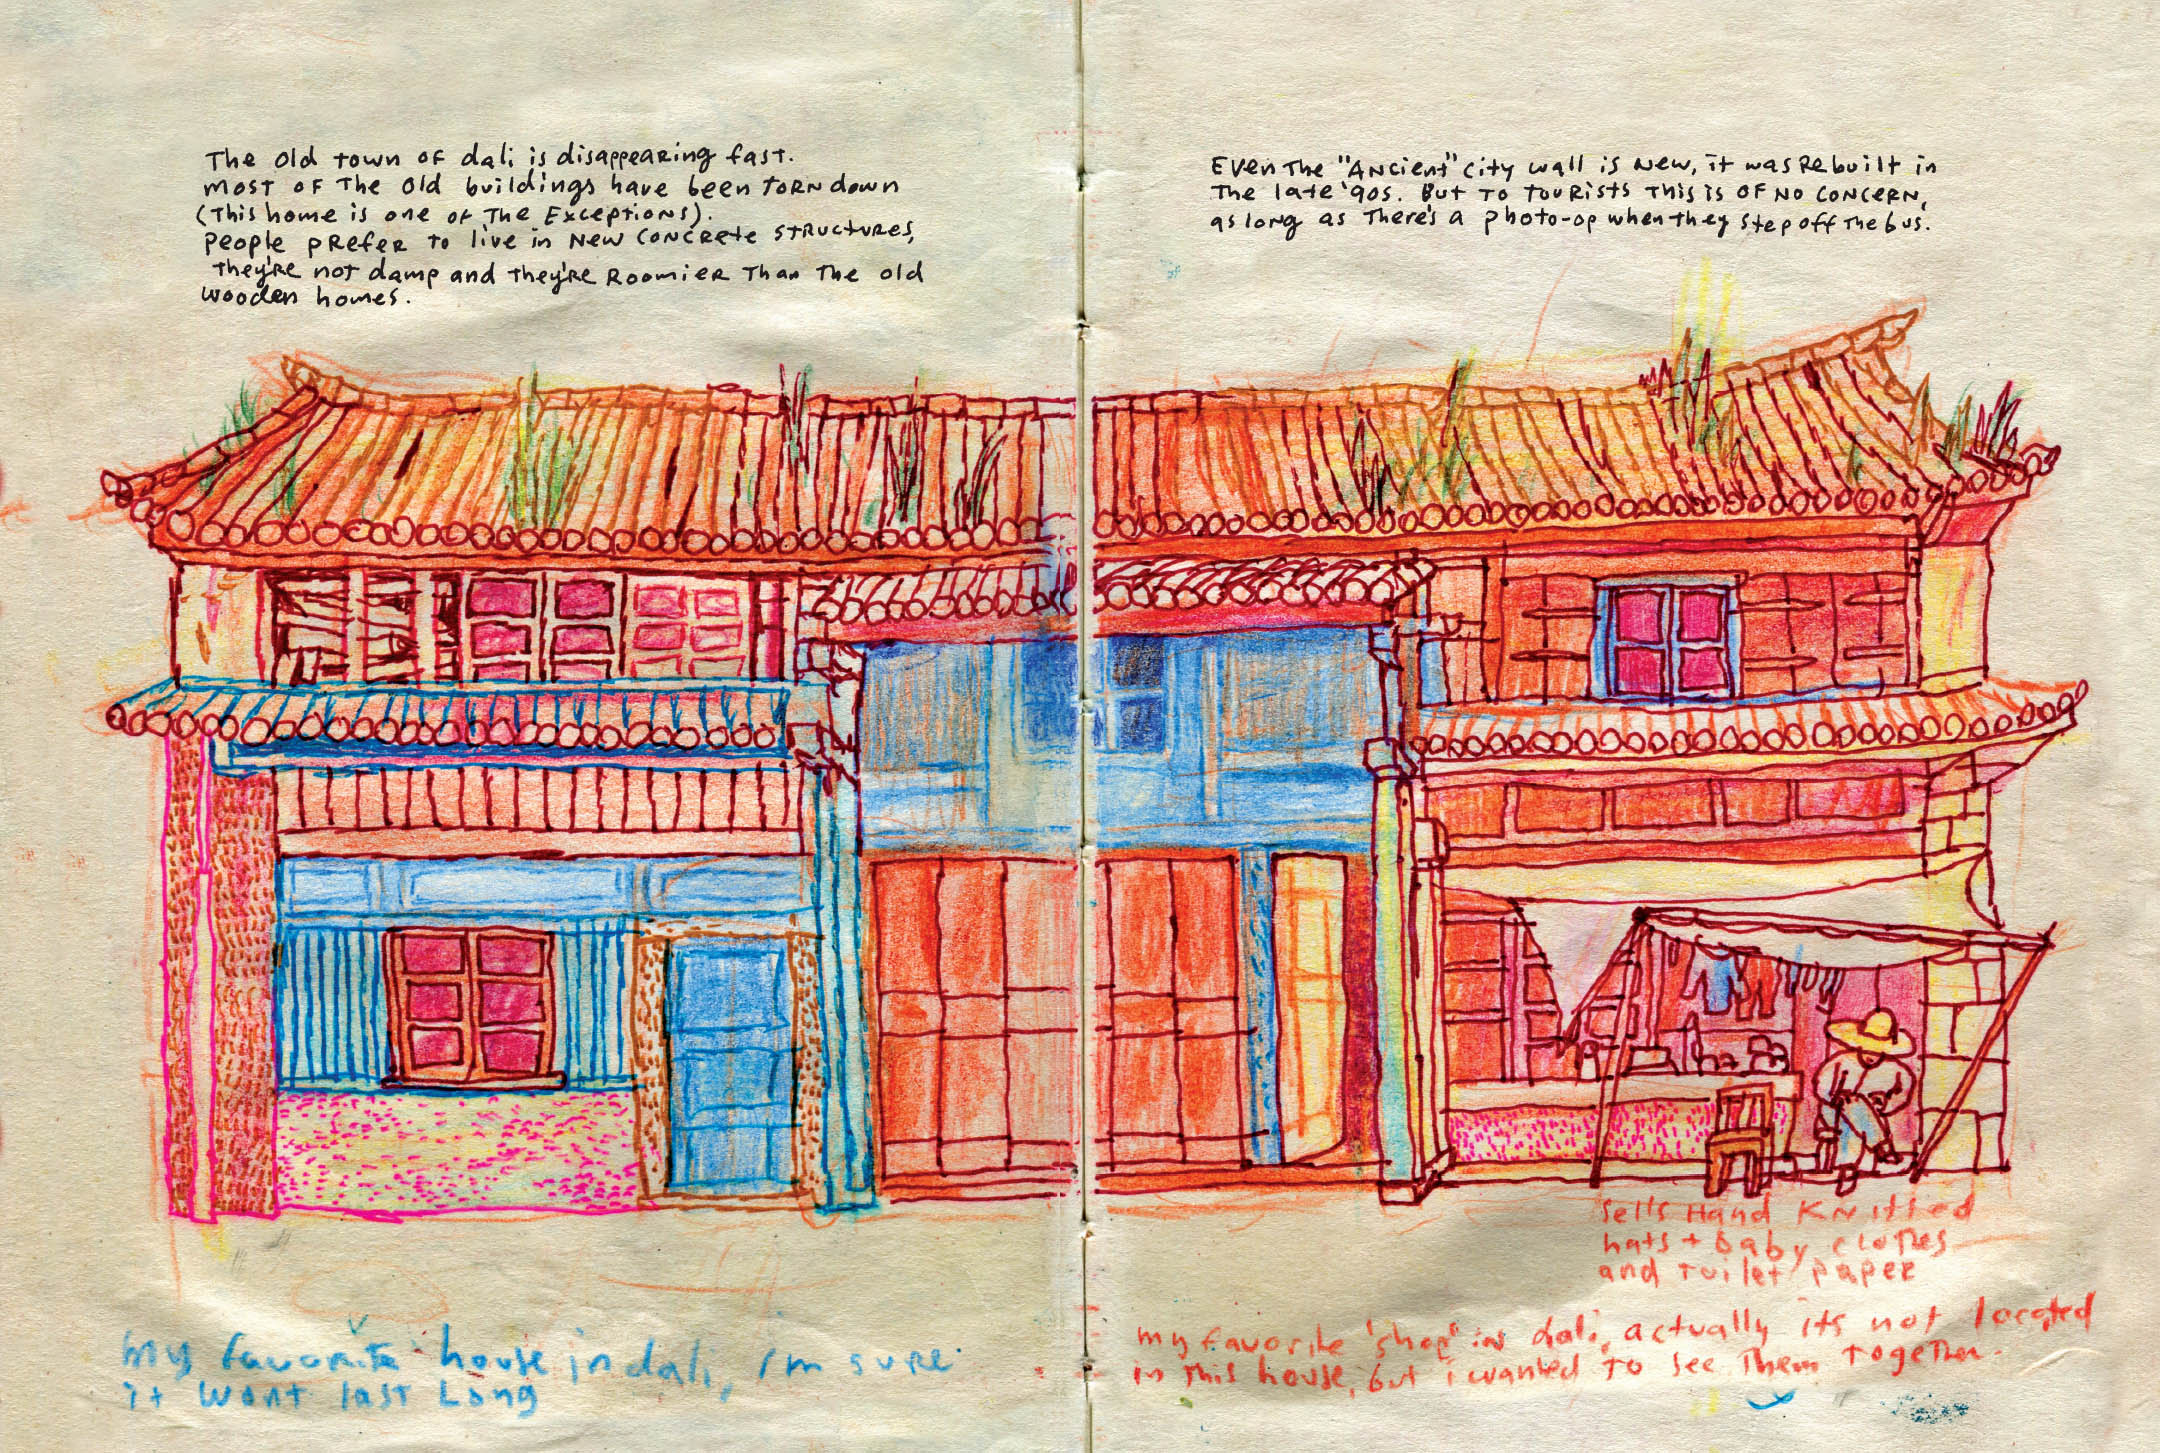 The old town of dali is disappearing fast.
most of the old buildings have been torn down
(this home is one of the exceptions).
people prefer to live in new concrete structures,
they're not damp and they're roomier than the old
wooden homes.
Even the "Ancient" city wall is new, it was rebuilt in
the late '90s. But to tourists this is of no concern,
as long as there's a photo-op when they step off the bus.
sells Hand Knitted
hats + baby clothes
and toilet paper
my favorite house in dali, i'm sure
it wont last Long
my favorite 'shop" in dali, actually its not located
in this house, but i wanted to see them together.